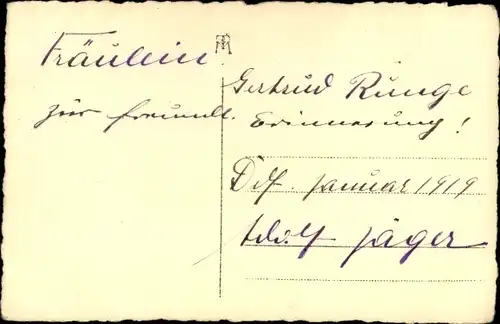 Fräulein Gertrud Runge
zur freundl. Erinnerung!
Ddf. Januar 1919
Adolf Jäger